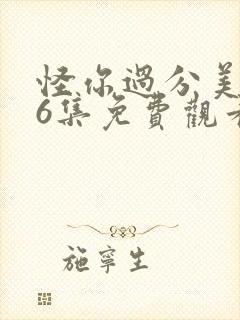 怪你過分美
6集免費觀看
施寧生